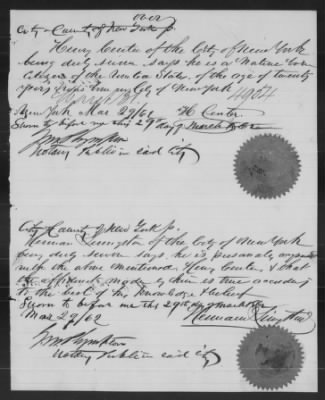 over
City & County of New York ss.
Henry Center of the City of New York
being duly sworn says he is a Native born
Citizen of the United States of the age of twenty
years
New York Mar 29/62 H Center
Sworn to before me this 29th day of March 1862
Notary Public in said City
City & County of New York ss.
Herman Livingston of the City of New York
being duly sworn says he is personally acquainted
with the above mentioned Henry Center, & that
the affidavit made by him is true according
to the best of his knowledge & belief
Sworn to before me this 29th day of March
Mar 29/62 Herman Livingston
Notary Public in said City